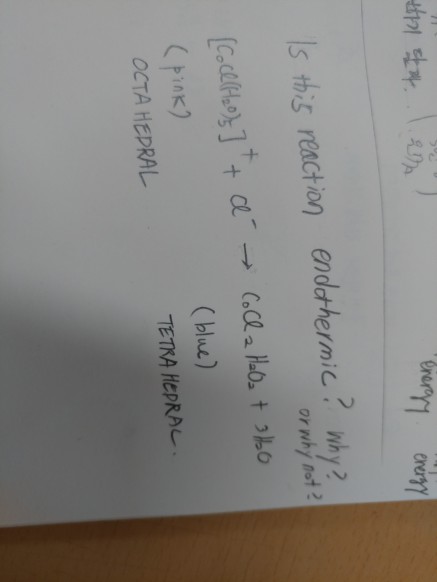 Is this reaction endothermic? Why?
or why not?
[CoCl(H2O)5]+ + Cl- → CoCl2H2O2 + 3H2O
(pink) (blue)
OCTAHEDRAL TETRAHEDRAL.
energy
energy